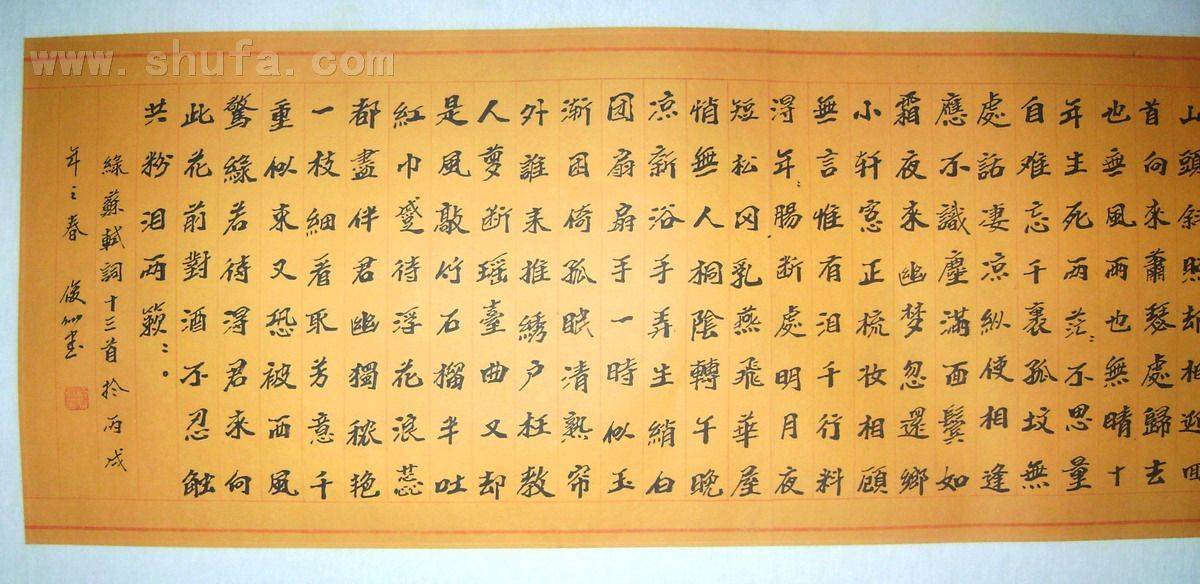 www.shufa.com
山頭斜照却相迎回
首向來蕭瑟處歸去
也無風雨也無晴十
年生死两茫:不思量
自难忘千裏孤坟無
處話凄凉縱使相逢
應不識塵滿面鬓如
霜夜來幽梦忽還鄉
小轩窓正梳妆相顧
無言惟有泪千行料
得年:腸断處明月夜
短松冈乳燕飛華屋
悄無人桐陰轉午晚
凉新浴手弄生綃白
团扇扇手一時似玉
渐困倚孤眠清熟帘
外誰来推綉户枉教
人夢断瑶臺曲又却
是風敲竹石榴半吐
紅巾蹙待浮花浪蕊
都盡伴君幽獨秾艳
一枝細看取芳意千
重似束又恐被西風
驚綠若待得君来向
此花前對酒不忍触
共粉泪两簌::。
綠蘇軾詞十三首於丙戌
年之春 俊書